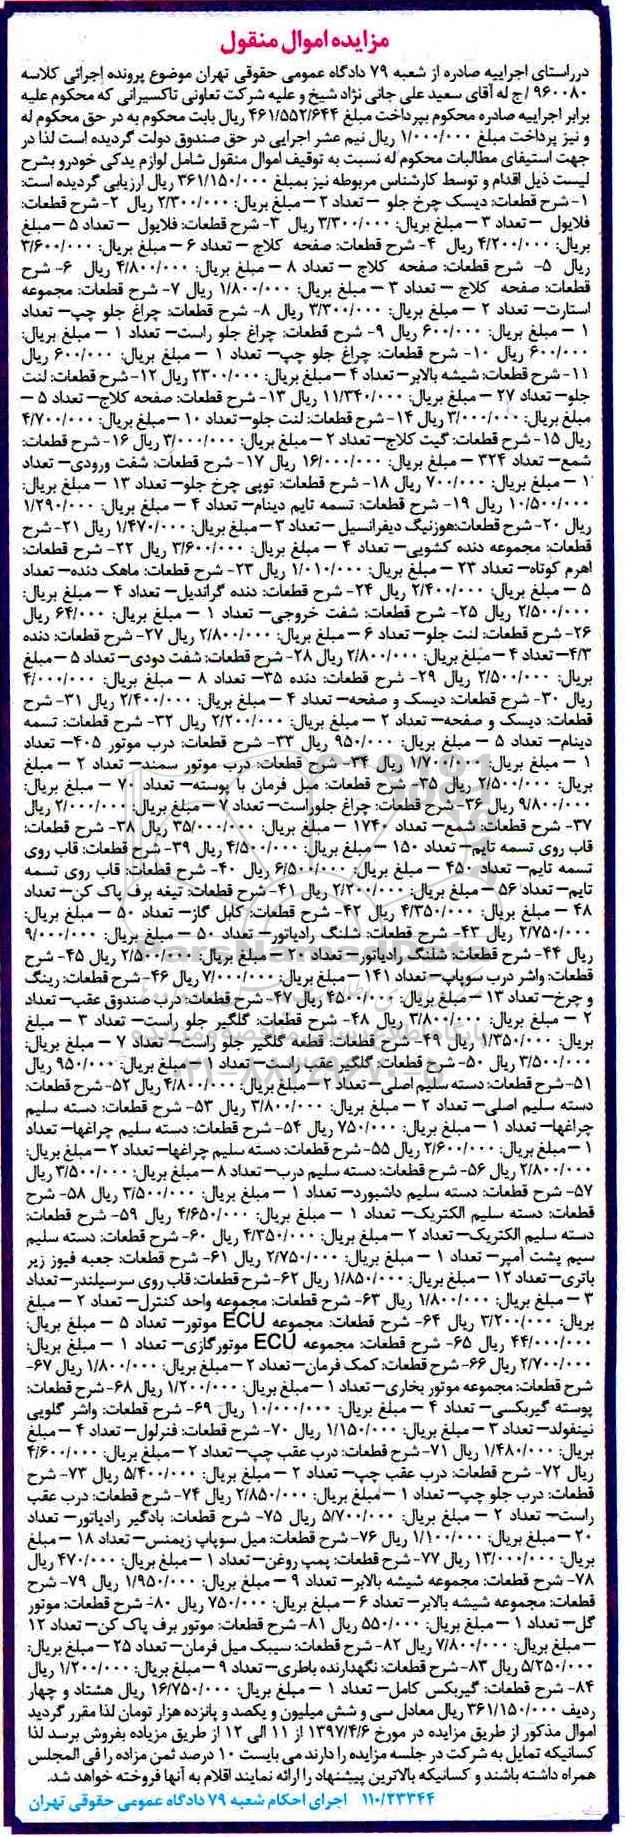 مزایده اموال منقول
درراستای اجراییه صادره از شعبه ۷۹ دادگاه عمومی حقوقی تهران موضوع پرونده اجرائی کلاسه
۹۶۰۰۸۰ /ج له آقای سعید علی جانی نژاد شیخ و علیه شرکت تعاونی تاکسیرانی که محکوم علیه
برابر اجراییه صادره محکوم بپرداخت مبلغ ۴۶۱/۵۵۲/۶۴۴ ریال بابت محکوم به در حق محکوم له
و نیز پرداخت مبلغ ۱/۰۰۰/۰۰۰ ریال نیم عشر اجرایی در حق صندوق دولت گردیده است لذا در
جهت استیفای مطالبات محکوم له نسبت به توقیف اموال منقول شامل لوازم یدکی خودرو بشرح
لیست ذیل اقدام و توسط کارشناس مربوطه نیز بمبلغ ۳۶۱/۱۵۰/۰۰۰ ریال ارزیابی گردیده است:
۱- شرح قطعات: دیسک چرخ جلو – تعداد ۲ – مبلغ بریال: ۲/۳۰۰/۰۰۰ ریال ۲- شرح قطعات:
فلایول – تعداد ۳ – مبلغ بریال: ۳/۳۰۰/۰۰۰ ریال ۳- شرح قطعات: فلایول – تعداد ۵ – مبلغ
بریال: ۴/۲۰۰/۰۰۰ ریال ۴- شرح قطعات: صفحه کلاچ – تعداد ۶ – مبلغ بریال: ۳/۶۰۰/۰۰۰
ریال ۵- شرح قطعات: صفحه کلاچ – تعداد ۸ – مبلغ بریال: ۴/۸۰۰/۰۰۰ ریال ۶- شرح
قطعات: صفحه کلاچ – تعداد ۳ – مبلغ بریال: ۱/۸۰۰/۰۰۰ ریال ۷- شرح قطعات: مجموعه
استارت– تعداد ۲ – مبلغ بریال: ۳/۳۰۰/۰۰۰ ریال ۸- شرح قطعات: چراغ جلو چپ– تعداد
۱ – مبلغ بریال: ۶۰۰/۰۰۰ ریال ۹- شرح قطعات: چراغ جلو راست– تعداد ۱ – مبلغ بریال:
۶۰۰/۰۰۰ ریال ۱۰- شرح قطعات: چراغ جلو چپ– تعداد ۱ – مبلغ بریال: ۶۰۰/۰۰۰ ریال
۱۱- شرح قطعات: شیشه بالابر– تعداد ۴ – مبلغ بریال: ۲۳۰۰/۰۰۰ ریال ۱۲- شرح قطعات: لنت
جلو– تعداد ۲۷ – مبلغ بریال: ۱۱/۳۴۰/۰۰۰ ریال ۱۳- شرح قطعات: صفحه کلاچ– تعداد ۵ –
مبلغ بریال: ۳/۰۰۰/۰۰۰ ریال ۱۴- شرح قطعات: لنت جلو– تعداد ۱۰ – مبلغ بریال: ۴/۷۰۰/۰۰۰
ریال ۱۵- شرح قطعات: گیت کلاچ– تعداد ۲ – مبلغ بریال: ۳/۰۰۰/۰۰۰ ریال ۱۶- شرح قطعات:
شمع– تعداد ۳۲۴ – مبلغ بریال: ۱۶/۰۰۰/۰۰۰ ریال ۱۷- شرح قطعات: شفت ورودی– تعداد
۱ – مبلغ بریال: ۷۰۰/۰۰۰ ریال ۱۸- شرح قطعات: توپی چرخ جلو– تعداد ۱۳ – مبلغ بریال:
۱۰/۵۰۰/۰۰۰ ریال ۱۹- شرح قطعات: تسمه تایم دینام– تعداد ۴ – مبلغ بریال: ۱/۲۹۰/۰۰۰
ریال ۲۰- شرح قطعات:هوزنیگ دیفرانسیل – تعداد ۳ – مبلغ بریال: ۱/۴۷۰/۰۰۰ ریال ۲۱- شرح
قطعات: مجموعه دنده کشویی– تعداد ۴ – مبلغ بریال: ۳/۶۰۰/۰۰۰ ریال ۲۲- شرح قطعات:
اهرم کوتاه– تعداد ۲۳ – مبلغ بریال: ۱/۰۱۰/۰۰۰ ریال ۲۳- شرح قطعات: ماهک دنده– تعداد
۵ – مبلغ بریال: ۲/۴۰۰/۰۰۰ ریال ۲۴- شرح قطعات: دنده گراندیل– تعداد ۴ – مبلغ بریال:
۲/۵۰۰/۰۰۰ ریال ۲۵- شرح قطعات: شفت خروجی– تعداد ۱ – مبلغ بریال: ۶۴/۰۰۰ ریال
۲۶- شرح قطعات: لنت جلو– تعداد ۶ – مبلغ بریال: ۲/۸۰۰/۰۰۰ ریال ۲۷- شرح قطعات: دنده
۴/۳– تعداد ۴ – مبلغ بریال: ۲/۸۰۰/۰۰۰ ریال ۲۸- شرح قطعات: شفت دودی– تعداد ۵ – مبلغ
بریال: ۲/۵۰۰/۰۰۰ ریال ۲۹- شرح قطعات: دنده ۳۵– تعداد ۸ – مبلغ بریال: ۴/۰۰۰/۰۰۰
ریال ۳۰- شرح قطعات: دیسک و صفحه– تعداد ۴ – مبلغ بریال: ۲/۴۰۰/۰۰۰ ریال ۳۱- شرح
قطعات: دیسک و صفحه– تعداد ۲ – مبلغ بریال: ۲/۲۰۰/۰۰۰ ریال ۳۲- شرح قطعات: تسمه
دینام– تعداد ۵ – مبلغ بریال: ۹۵۰/۰۰۰ ریال ۳۳- شرح قطعات: درب موتور ۴۰۵– تعداد
۱ – مبلغ بریال: ۱/۷۰۰/۰۰۰ ریال ۳۴- شرح قطعات: درب موتور سمند– تعداد ۲ – مبلغ
بریال: ۲/۵۰۰/۰۰۰ ریال ۳۵- شرح قطعات: میل فرمان با پوسته– تعداد ۷ – مبلغ بریال:
۹/۸۰۰/۰۰۰ ریال ۳۶- شرح قطعات: چراغ جلوراست– تعداد ۷ – مبلغ بریال: ۲/۰۰۰/۰۰۰ ریال
۳۷- شرح قطعات: شمع– تعداد ۱۷۴۰ – مبلغ بریال: ۳۵/۰۰۰/۰۰۰ ریال ۳۸- شرح قطعات:
قاب روی تسمه تایم– تعداد ۱۵۰ – مبلغ بریال: ۴/۵۰۰/۰۰۰ ریال ۳۹- شرح قطعات: قاب روی
تسمه تایم– تعداد ۴۵۰ – مبلغ بریال: ۶/۵۰۰/۰۰۰ ریال ۴۰- شرح قطعات: قاب روی تسمه
تایم– تعداد ۵۶ – مبلغ بریال: ۲/۲۰۰/۰۰۰ ریال ۴۱- شرح قطعات: تیغه برف پاک کن– تعداد
۴۸ – مبلغ بریال: ۴/۳۵۰/۰۰۰ ریال ۴۲- شرح قطعات: کابل گاز– تعداد ۵۰ – مبلغ بریال:
۲/۷۵۰/۰۰۰ ریال ۴۳- شرح قطعات: شلنگ رادیاتور– تعداد ۵۰ – مبلغ بریال: ۹/۰۰۰/۰۰۰
ریال ۴۴- شرح قطعات: شلنگ رادیاتور– تعداد ۲۰ – مبلغ بریال: ۲/۵۰۰/۰۰۰ ریال ۴۵- شرح
قطعات: واشر درب سوپاپ– تعداد ۱۴۱ – مبلغ بریال: ۷/۰۰۰/۰۰۰ ریال ۴۶- شرح قطعات: رینگ
و چرخ– تعداد ۱۳ – مبلغ بریال: ۴۵۰۰/۰۰۰ ریال ۴۷- شرح قطعات: درب صندوق عقب– تعداد
۲ – مبلغ بریال: ۳/۸۰۰/۰۰۰ ریال ۴۸- شرح قطعات: گلگیر جلو راست– تعداد ۳ – مبلغ
بریال: ۱/۳۵۰/۰۰۰ ریال ۴۹- شرح قطعات: قطعه گلگیر جلو راست– تعداد ۷ – مبلغ بریال:
۳/۵۰۰/۰۰۰ ریال ۵۰- شرح قطعات: گلگیر عقب راست– تعداد ۱ – مبلغ بریال: ۹۵۰/۰۰۰ ریال
۵۱- شرح قطعات: دسته سلیم اصلی– تعداد ۲ – مبلغ بریال: ۴/۸۰۰/۰۰۰ ریال ۵۲- شرح قطعات:
دسته سلیم اصلی– تعداد ۲ – مبلغ بریال: ۳/۸۰۰/۰۰۰ ریال ۵۳- شرح قطعات: دسته سلیم
چراغها– تعداد ۱ – مبلغ بریال: ۷۵۰/۰۰۰ ریال ۵۴- شرح قطعات: دسته سلیم چراغها– تعداد
۱ – مبلغ بریال: ۲/۶۰۰/۰۰۰ ریال ۵۵- شرح قطعات: دسته سلیم چراغها– تعداد ۲ – مبلغ بریال:
۲/۸۰۰/۰۰۰ ریال ۵۶- شرح قطعات: دسته سلیم درب– تعداد ۸ – مبلغ بریال: ۳/۵۰۰/۰۰۰ ریال
۵۷- شرح قطعات: دسته سلیم داشبورد– تعداد ۱ – مبلغ بریال: ۳/۵۰۰/۰۰۰ ریال ۵۸- شرح
قطعات: دسته سلیم الکتریک– تعداد ۱ – مبلغ بریال: ۴/۶۵۰/۰۰۰ ریال ۵۹- شرح قطعات:
دسته سلیم الکتریک– تعداد ۲ – مبلغ بریال: ۴/۳۵۰/۰۰۰ ریال ۶۰- شرح قطعات: دسته سلیم
سیم پشت آمپر– تعداد ۱ – مبلغ بریال: ۲/۷۵۰/۰۰۰ ریال ۶۱- شرح قطعات: جعبه فیوز زیر
باتری– تعداد ۱۲ – مبلغ بریال: ۱/۸۵۰/۰۰۰ ریال ۶۲- شرح قطعات: قاب روی سرسیلندر– تعداد
۳ – مبلغ بریال: ۱/۸۰۰/۰۰۰ ریال ۶۳- شرح قطعات: مجموعه واحد کنترل– تعداد ۲ – مبلغ
بریال: ۳/۲۰۰/۰۰۰ ریال ۶۴- شرح قطعات: مجموعه ECU موتور– تعداد ۵ – مبلغ بریال:
۴۴/۰۰۰/۰۰۰ ریال ۶۵- شرح قطعات: مجموعه ECU موتورگازی– تعداد ۱ – مبلغ بریال:
۲/۷۰۰/۰۰۰ ریال ۶۶- شرح قطعات: کمک فرمان– تعداد ۲ – مبلغ بریال: ۱/۸۰۰/۰۰۰ ریال ۶۷-
شرح قطعات: مجموعه موتور بخاری– تعداد ۱ – مبلغ بریال: ۱/۲۰۰/۰۰۰ ریال ۶۸- شرح قطعات:
پوسته گیربکسی– تعداد ۴ – مبلغ بریال: ۱۰/۰۰۰/۰۰۰ ریال ۶۹- شرح قطعات: واشر گلویی
نینفولد– تعداد ۳ – مبلغ بریال: ۱/۱۵۰/۰۰۰ ریال ۷۰- شرح قطعات: فنرلول– تعداد ۴ – مبلغ
بریال: ۱/۴۸۰/۰۰۰ ریال ۷۱- شرح قطعات: درب عقب چپ– تعداد ۲ – مبلغ بریال: ۴/۶۰۰/۰۰۰
ریال ۷۲- شرح قطعات: درب عقب چپ– تعداد ۲ – مبلغ بریال: ۵/۴۰۰/۰۰۰ ریال ۷۳- شرح
قطعات: درب جلو چپ– تعداد ۱ – مبلغ بریال: ۲/۸۵۰/۰۰۰ ریال ۷۴- شرح قطعات: درب عقب
راست– تعداد ۲ – مبلغ بریال: ۵/۷۰۰/۰۰۰ ریال ۷۵- شرح قطعات: بادگیر رادیاتور– تعداد
۲۰ – مبلغ بریال: ۱/۱۰۰/۰۰۰ ریال ۷۶- شرح قطعات: میل سوپاپ زیمنس– تعداد ۱۸ – مبلغ
بریال: ۱۳/۰۰۰/۰۰۰ ریال ۷۷- شرح قطعات: پمپ روغن– تعداد ۱ – مبلغ بریال: ۴۷۰/۰۰۰ ریال
۷۸- شرح قطعات: مجموعه شیشه بالابر– تعداد ۹ – مبلغ بریال: ۱/۹۵۰/۰۰۰ ریال ۷۹- شرح
قطعات: مجموعه شیشه بالابر– تعداد ۶ – مبلغ بریال: ۷۵۰/۰۰۰ ریال ۸۰- شرح قطعات: موتور
گل– تعداد ۱ – مبلغ بریال: ۵۵۰/۰۰۰ ریال ۸۱- شرح قطعات: موتور برف پاک کن– تعداد ۱۲
– مبلغ بریال: ۷/۸۰۰/۰۰۰ ریال ۸۲- شرح قطعات: سیبک میل فرمان– تعداد ۲۵ – مبلغ بریال:
۵/۲۵۰/۰۰۰ ریال ۸۳- شرح قطعات: نگهدارنده باطری– تعداد ۹ – مبلغ بریال: ۱/۲۰۰/۰۰۰ ریال
۸۴- شرح قطعات: گیربکس کامل– تعداد ۱ – مبلغ بریال: ۱۶/۷۵۰/۰۰۰ ریال هشتاد و چهار
ردیف ۳۶۱/۱۵۰/۰۰۰ ریال معادل سی و شش میلیون و یکصد و پانزده هزار تومان لذا مقرر گردید
اموال مذکور از طریق مزایده در مورخ ۱۳۹۷/۴/۶ از ۱۱ الی ۱۲ از طریق مزیاده بفروش برسد لذا
کسانیکه تمایل به شرکت در جلسه مزایده را دارند می بایست ۱۰ درصد ثمن مزاده را فی المجلس
همراه داشته باشند و کسانیکه بالاترین پیشنهاد را ارائه نمایند اقلام به آنها فروخته خواهد شد.
۱۱۰/۲۳۳۴۴ اجرای احکام شعبه ۷۹ دادگاه عمومی حقوقی تهران